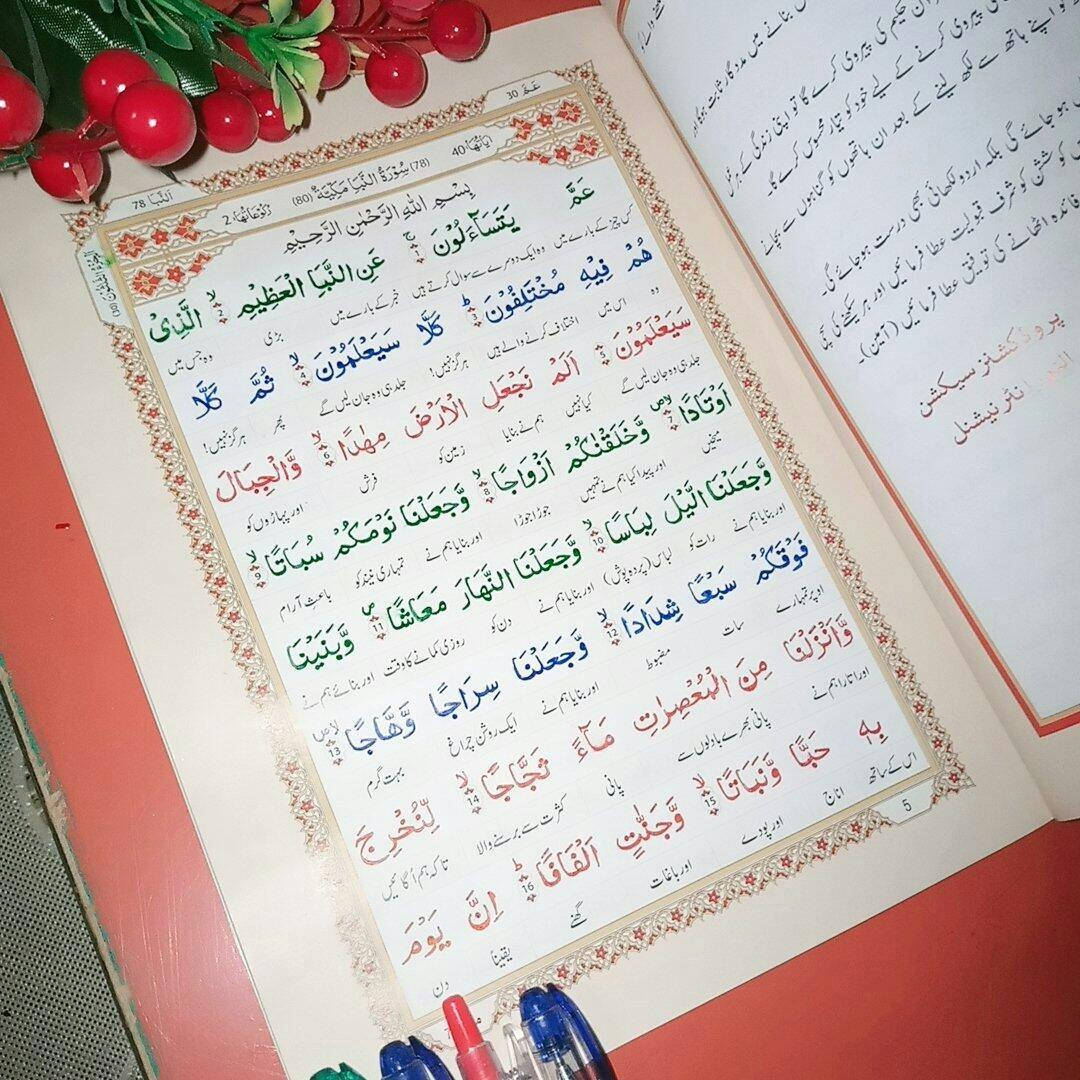 عَمَّ 30
اَلنَّبَا 78
اٰيَاتُهَا:40
(78) سُوْرَةُ النَّبَاِ مَكِّيَّةٌ (80)
رُكُوْعَاتُهَا:2
بِسْمِ اللهِ الرَّحْمٰنِ الرَّحِيْمِ
عَمَّ يَتَسَآءَلُوْنَ 1 عَنِ النَّبَاِ الْعَظِيْمِ 2 الَّذِيْ
کس چیز کے بارے میں وہ ایک دوسرے سے سوال کرتے ہیں خبر کے بارے میں بڑی وہ جس میں
هُمْ فِيْهِ مُخْتَلِفُوْنَ 3 كَلَّا سَيَعْلَمُوْنَ 4 ثُمَّ كَلَّا
وہ اس میں اختلاف کرنے والے ہیں ہرگز نہیں! جلد ہی وہ جان لیں گے پھر ہرگز نہیں!
سَيَعْلَمُوْنَ 5 اَلَمْ نَجْعَلِ الْاَرْضَ مِهٰدًا 6 وَّالْجِبَالَ
جلد ہی وہ جان لیں گے کیا نہیں ہم نے بنایا زمین کو فرش اور پہاڑوں کو
اَوْتَادًا 7 وَّخَلَقْنٰكُمْ اَزْوَاجًا 8 وَّجَعَلْنَا نَوْمَكُمْ سُبَاتًا 9
میخیں اور پیدا کیا ہم نے تمہیں جوڑا جوڑا اور بنایا ہم نے تمہاری نیند کو باعث آرام
وَّجَعَلْنَا الَّيْلَ لِبَاسًا 10 وَّجَعَلْنَا النَّهَارَ مَعَاشًا 11 وَّبَنَيْنَا
اور بنایا ہم نے رات کو لباس (پردہ پوش) اور بنایا ہم نے دن کو روزی کمانے کا وقت اور بنائے ہم نے
فَوْقَكُمْ سَبْعًا شِدَادًا 12 وَّجَعَلْنَا سِرَاجًا وَّهَّاجًا 13
اوپر تمہارے سات مضبوط اور بنایا ہم نے ایک روشن چراغ بہت گرم
وَّاَنْزَلْنَا مِنَ الْمُعْصِرٰتِ مَآءً ثَجَّاجًا 14 لِّنُخْرِجَ
اور اتارا ہم نے پانی بھرے بادلوں سے پانی کثرت سے برسنے والا تاکہ ہم اگائیں
بِهٖ حَبًّا وَّنَبَاتًا 15 وَّجَنّٰتٍ اَلْفَافًا 16 اِنَّ يَوْمَ
اس کے ساتھ اناج اور پودے اور باغات گھنے یقیناً دن
5
بنانے میں مددگار ثابت ہوگا اور
کی پیروی کرنے کے لیے خود کو تیار محسوس کرے گا۔
اپنے ہاتھ سے لکھ لینے کے بعد ان ہاتھوں کو گناہوں سے بچانے
ہو جائے گی بلکہ اردو لکھائی بھی درست ہو جائے گی۔
کوشش کو شرف قبولیت عطا فرمائیں اور ہر سیکھنے کی سچی
فائدہ اٹھانے کی توفیق عطا فرمائیں (آمین)۔
پروڈکشنز سیکشن
انٹرنیشنل